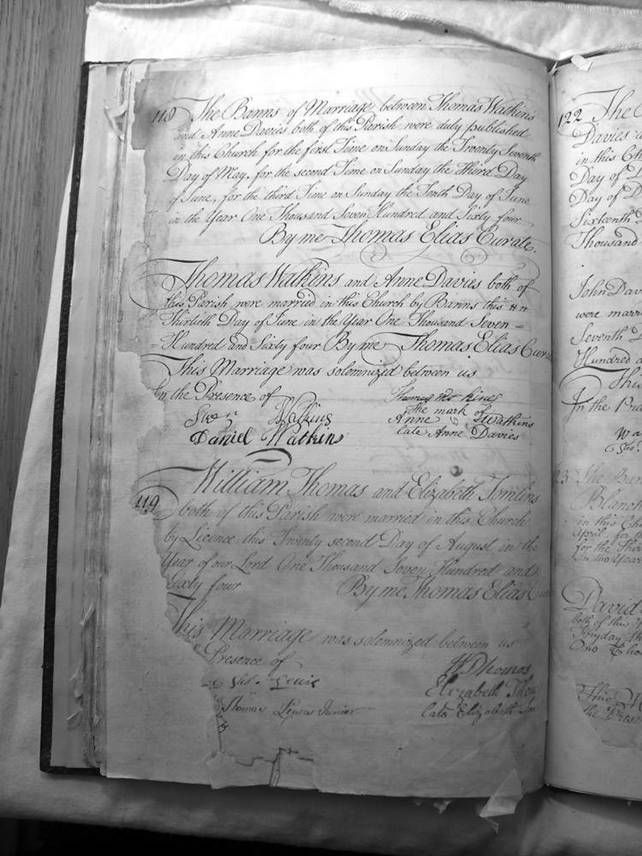 118 The Banns of Marriage between Thomas Watkins
and Anne Davies both of this Parish were duly published
in this Church for the first Time on Sunday the Twenty Seventh
Day of May, for the second Time on Sunday the Third Day
of June, for the third Time on Sunday the Tenth Day of June
in the Year One Thousand Seven Hundred and Sixty four
By me Thomas Elias Curate.
Thomas Watkins and Anne Davies both of
this Parish were married in this Church by Banns this
Thirtieth Day of June in the Year One Thousand Seven =
= Hundred and Sixty four By me Thomas Elias Cura
This Marriage was solemnized between us
In the Presence of
Watkins
Daniel Watkin
The mark of
Anne Watkins
late Anne Davies
119 William Thomas and Elizabeth Tomkins
both of this Parish were married in this Church
by Licence this Twenty second Day of August in the
Year of our Lord One Thousand Seven Hundred and
Sixty four By me Thomas Elias
This Marriage was solemnized between us
Presence of
Lewis
Thomas Lewis Junior
Thomas
Elizabeth
late Elizabeth
122 The
Davies
in this
Day of
Day of
Sixteenth
Thousand
John Dav
were marri
Seventh
Hundred
This
In the Pr
The Ban
in this
April
for the
David
both of this
One Thou
This
the Pres